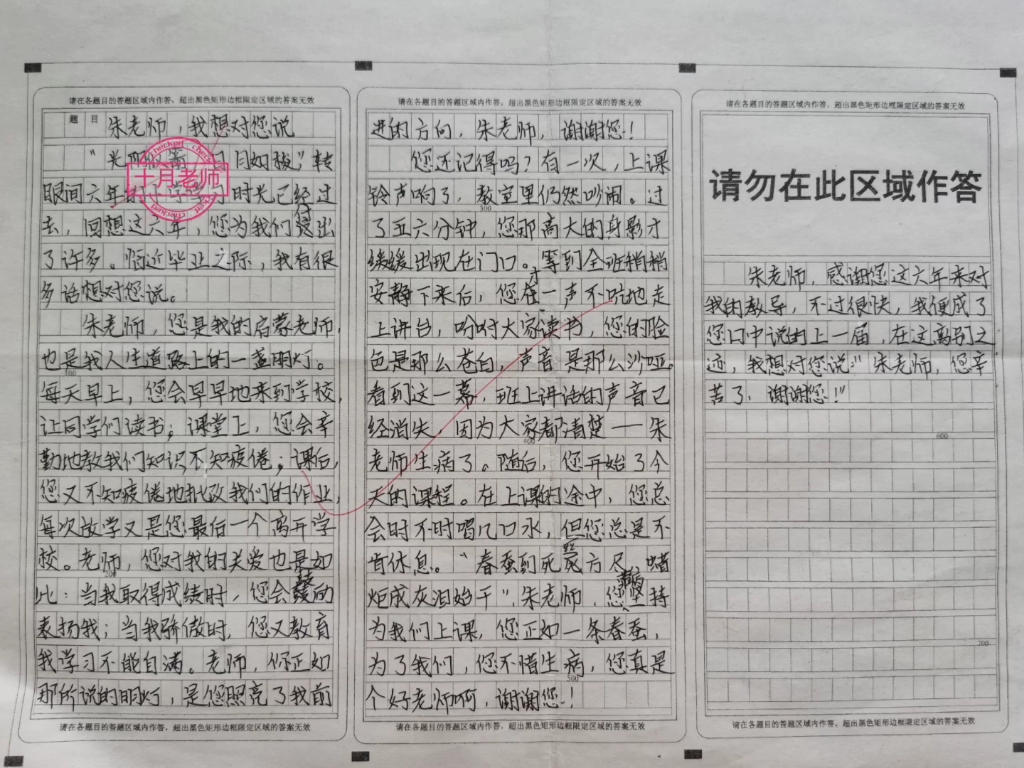 请在各题目的答题区域内作答，超出黑色矩形边框限定区域的答案无效
题目 朱老师，我想对您说
"光阴似箭，日月如梭"转
眼间六年的小学学习时光已经过
去，回想这六年，您为我们付出
了许多。临近毕业之际，我有很
多话想对您说。
朱老师，您是我的启蒙老师，
也是我人生道路上的一盏明灯。
每天早上，您会早早地来到学校，
让同学们读书；课堂上，您会辛
勤地教我们知识不知疲倦；课后，
您又不知疲倦地批改我们的作业，
每次放学又是您最后一个离开学
校。老师，您对我的关爱也是如
此：当我取得成绩时，您会
表扬我；当我骄傲时，您又教育
我学习不能自满。老师，你正如
那所说的明灯，是您照亮了我前
请在各题目的答题区域内作答，超出黑色矩形边框限定区域的答案无效
请在各题目的答题区域内作答，超出黑色矩形边框限定区域的答案无效
进的方向，朱老师，谢谢您！
您还记得吗？有一次，上课
铃声响了，教室里仍然吵闹。过
300
了五六分钟，您那高大的身影才
缓缓出现在门口。等到全班稍稍
安静下来后，您才一声不吭地走
上讲台，吩咐大家读书，您的脸
色是那么苍白，声音是那么沙哑。
看到这一幕，班上讲话的声音已
经消失，因为大家都清楚——朱
400
老师生病了。随后，您开始了今
天的课程。在上课的途中，您总
会时不时喝几口水，但您总是不
肯休息。"春蚕到死丝方尽，蜡
炬成灰泪始干"，朱老师，您坚持
为我们上课，您正如一条春蚕，
为了我们，您不惜生病，您真是
500
个好老师啊，谢谢您！
请在各题目的答题区域内作答，超出黑色矩形边框限定区域的答案无效
请在各题目的答题区域内作答，超出黑色矩形边框限定区域的答案无效
请勿在此区域作答
朱老师，感谢您这六年来对
我的教导，不过很快，我便成了
您口中说的上一届，在这离别之
迹，我想对您说："朱老师，您辛
苦了，谢谢您！"
600
700
请在各题目的答题区域内作答，超出黑色矩形边框限定区域的答案无效
十月老师